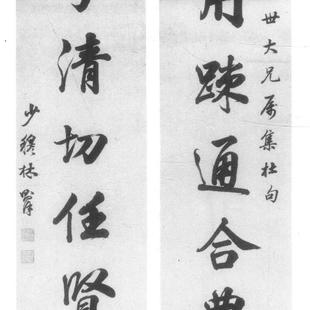 世大兄属集杜句
用疎通合典
清切任賢
少穆林則徐